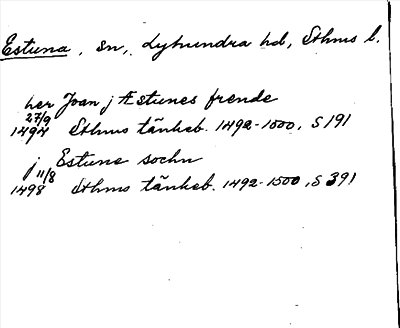 Estuna, sn, Lyhundra hd, Sthms l.
her Joan j Æstunes frende
27/9
1494 Sthms tänkeb. 1492-1500, S 191
j Estuna sochn
11/8
1498 Sthms tänkeb. 1492-1500, S 391